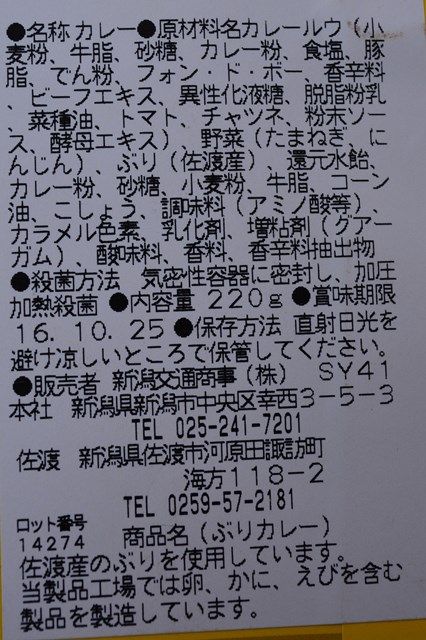 ●名称 カレー●原材料名カレールウ（小
麦粉、牛脂、砂糖、カレー粉、食塩、豚
脂、でん粉、フォン・ド・ボー、香辛料
、ビーフエキス、異性化液糖、脱脂粉乳
、菜種油、トマト、チャツネ、粉末ソー
ス、酵母エキス）、野菜（たまねぎ、に
んじん）、ぶり（佐渡産）、還元水飴、
カレー粉、砂糖、小麦粉、牛脂、コーン
油、こしょう、調味料（アミノ酸等）、
カラメル色素、乳化剤、増粘剤（グアー
ガム）、酸味料、香料、香辛料抽出物
●殺菌方法 気密性容器に密封し、加圧
加熱殺菌 ●内容量 220g ●賞味期限
16.10.25 ●保存方法 直射日光を
避け涼しいところで保管してください。
●販売者 新潟交通商事（株） SY41
本社 新潟県新潟市中央区幸西3-5-3
TEL 025-241-7201
佐渡 新潟県佐渡市河原田諏訪町
海方118-2
TEL 0259-57-2181
ロット番号
14274 商品名（ぶりカレー）
佐渡産のぶりを使用しています。
当製品工場では卵、かに、えびを含む
製品を製造しています。